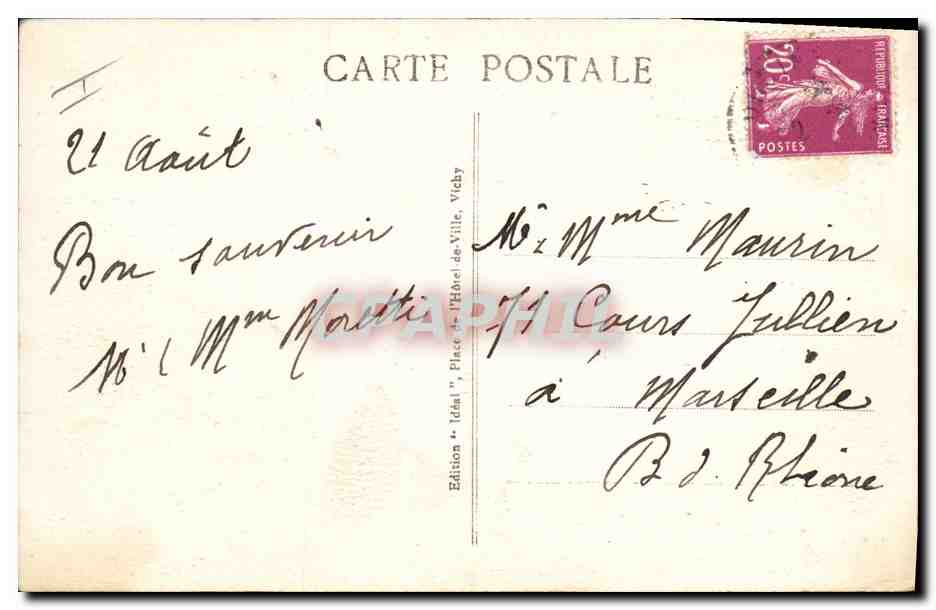 CARTE POSTALE
20c
REPUBLIQUE FRANÇAISE
POSTES
21 Août
Bon souvenir
Mr & Mme Moretti
Edition "Idéal", Place de l'Hôtel-de-Ville, Vichy
Mr & Mme Maurin
71 Cours Jullien
à Marseille
B d. Rhône
CPAPHIL